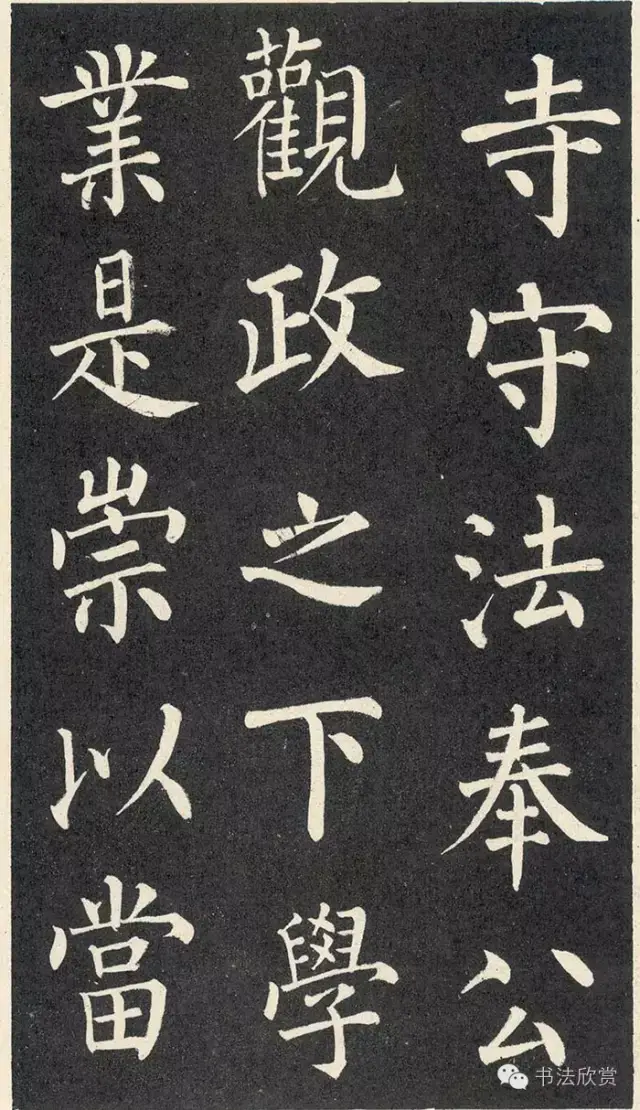 寺守法奉公
觀政之下學
業是崇以當
书法欣赏